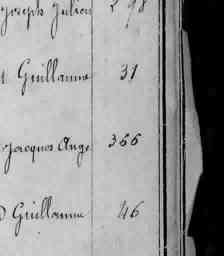 Joseph Julien 298
Guillaume 31
Jacques Ange 366
D Guillaume 46